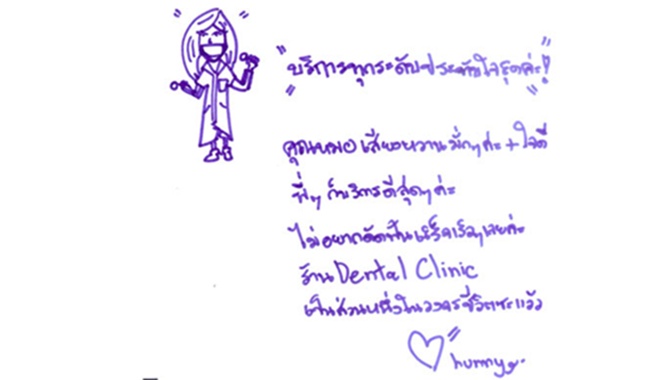 "บริการทุกระดับประทับใจสุดค่ะ!"
คุณหมอเสียงหวานมั่กๆค่ะ + ใจดี
พี่ๆ ก็บริการดีสุดๆค่ะ
ไม่อยากจัดฟันเสร็จเร็วๆเลยค่ะ
ร้าน Dental Clinic
เป็นส่วนหนึ่งในวงจรชีวิตซะแล้ว